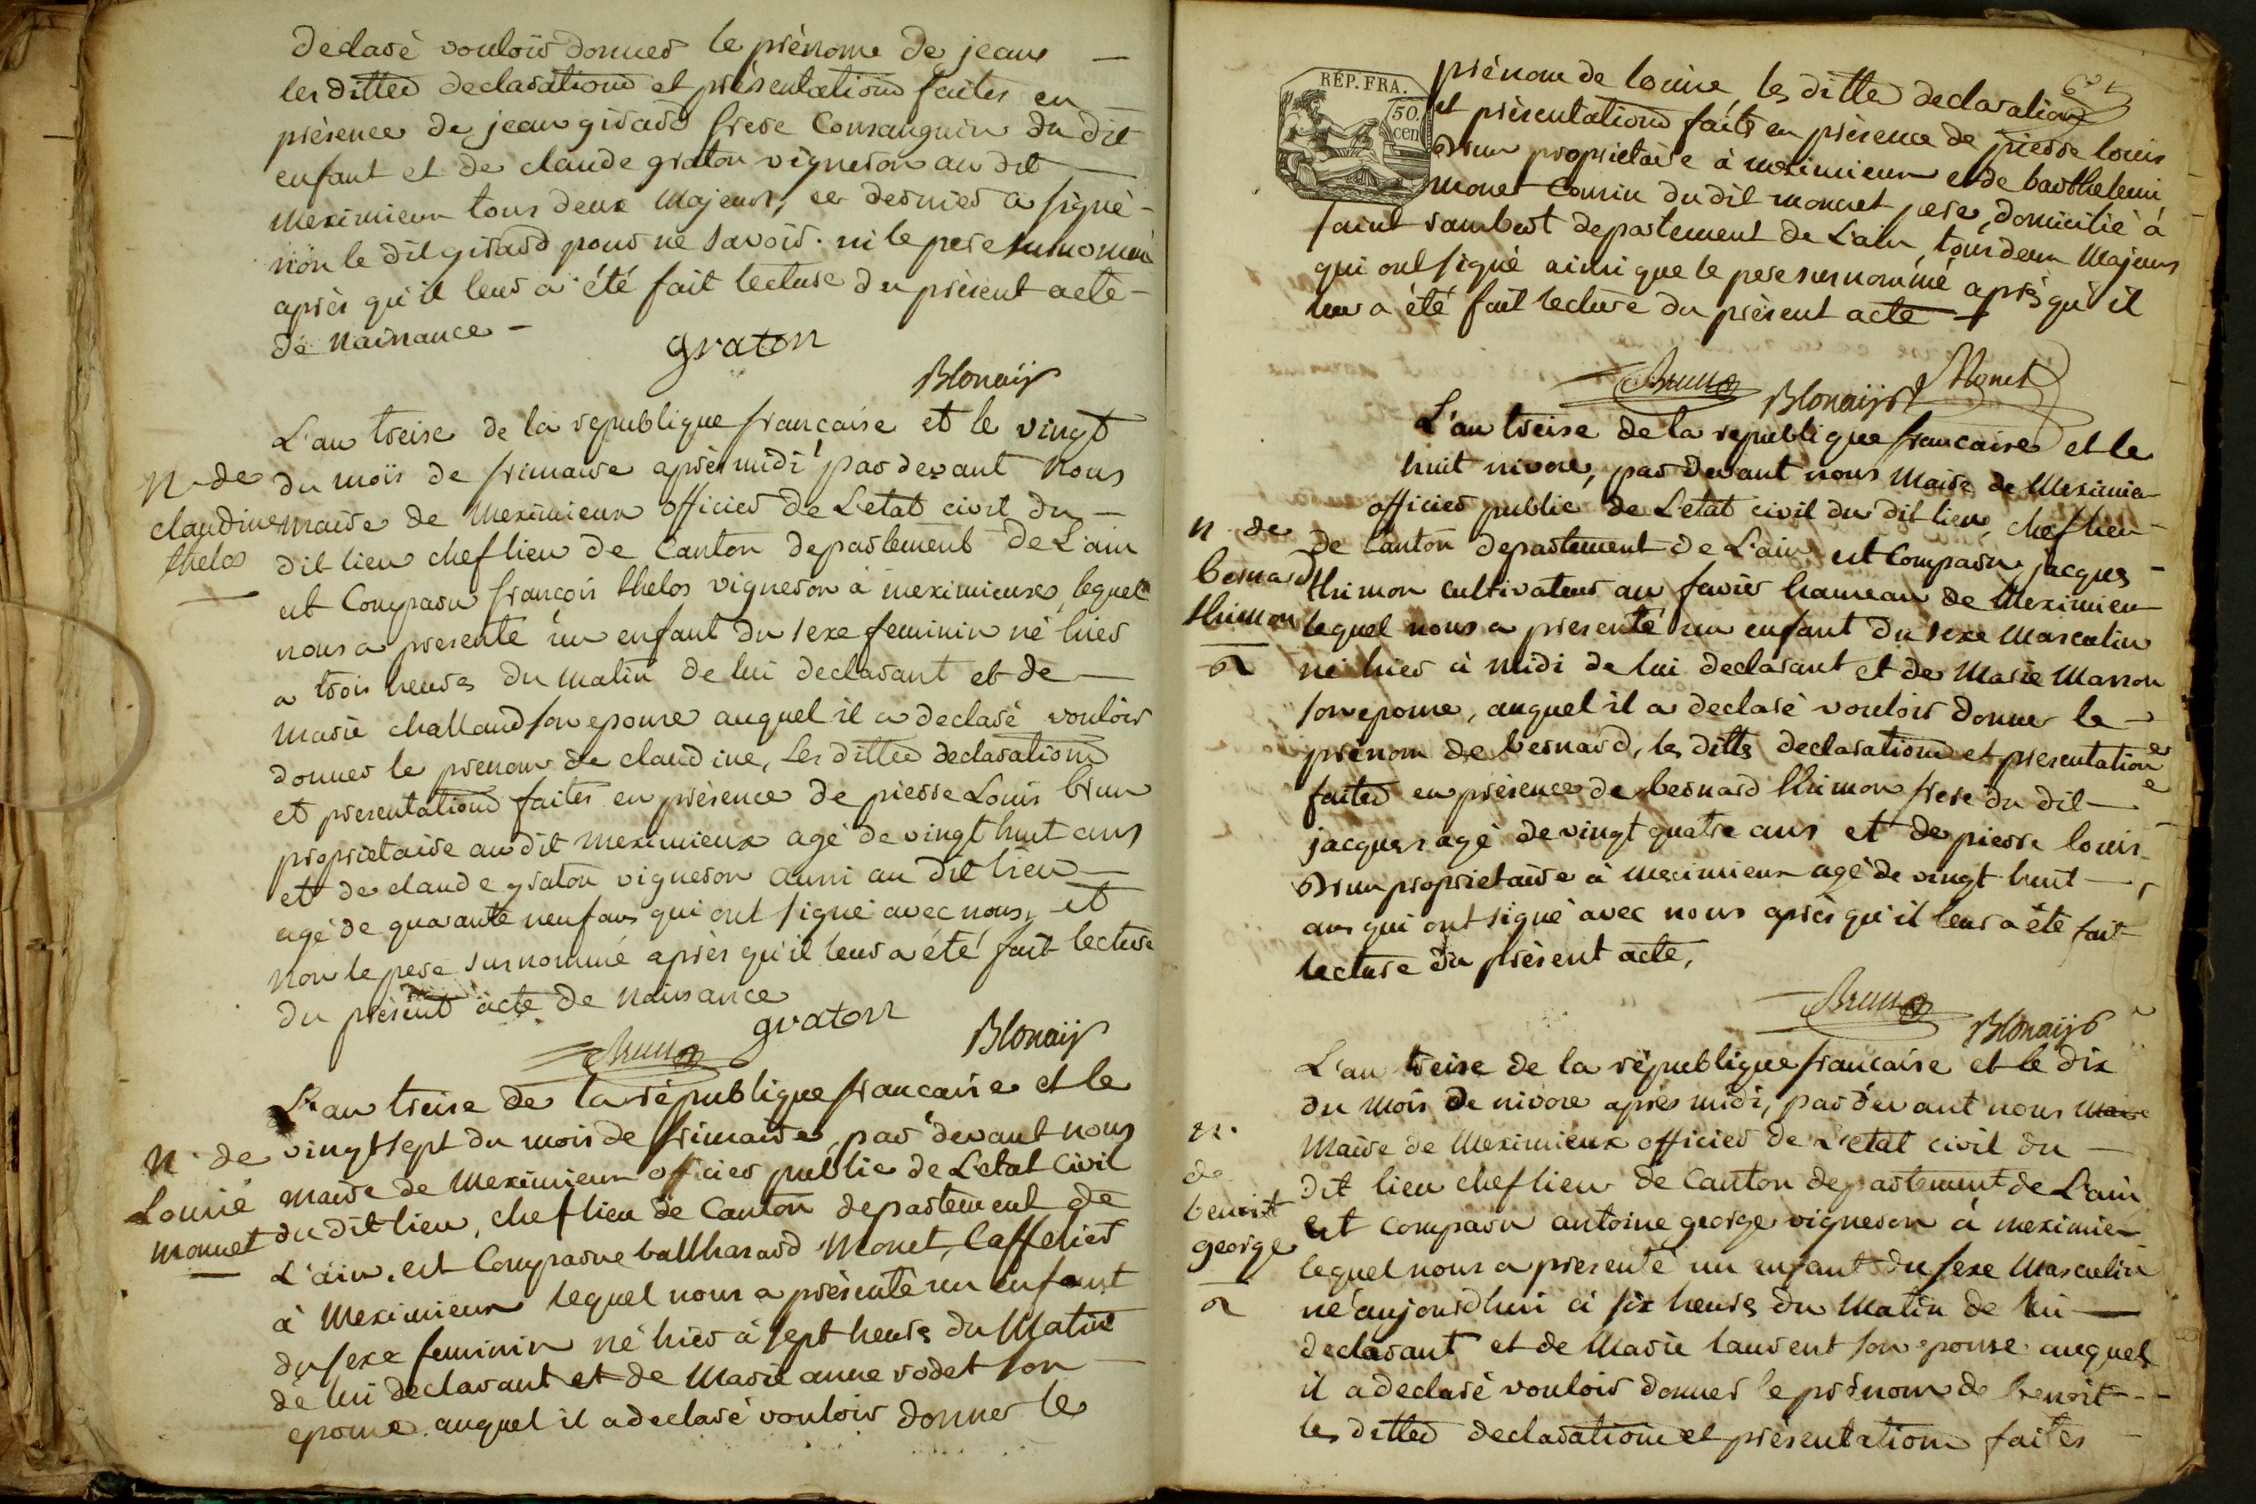 declaré vouloir donner le prénome de jean —
les dittes declarations et présentations faites en —
présence de jean girard frere Consanguin du dit
enfant et de claude graton vigneron au dit —
meximieux tous deux Majeurs, ce dernier a signé -
non le dit girard pour ne savoir. ni le pere surnomé
après qu'il leur a été fait lecture du présent acte -
de Naissance -
graton
Blonaÿ
L'an treise de la republique française et le vingt
du mois de frimaire après midi par devant nous
maire de meximieux officier de L'etat civil du —
dit lieu chef lieu de Canton departement de L'ain
est Comparu françois thelos vigneron à meximieux, lequel
nous a presenté un enfant du sexe feminin né hier
a trois heures du matin de lui declarant et de —
marie challand son epouse auquel il a declaré vouloir
donner le prenom de claudine, Les dittes declarations
et presentations faites en présence de pierre Louis brun
proprietaire au dit meximieux agé de vingt huit ans
et de claude graton vigneron aussi au dit lieu —
agé de quarante neuf ans qui ont signé avec nous, et
non le pere surnommé après qu'il leur a été fait lecture
du présent acte de naissance
n. de
claudine
thelos
graton
Brun
Blonaÿ
L'an treise de la république francaise et le
vingt sept du mois de frimaire, par devant nous
maire de Meximieux officier public de L'etat Civil
du dit lieu, chef lieu de Canton departement de
L'ain. est Comparue balthasard Monet, Caffetier
à Meximieux lequel nous a présenté un enfant
du sexe feminin né hier à sept heures du Matin
de lui declarant et de Marie anne rodet son —
epouse. auquel il a declaré vouloir donner le
N. de
Louise
monnet
RÉP. FRA.
50.
cen
prénom de louise les dittes declarations
et présentations faites en présence de pierre louis
Brun proprietaire à meximieux et de barthelemi
monet Cousin du dit monnet pere, domicilié à
saint rambert departement de L'ain, tous deux Majeurs
qui ont signé ainsi que le pere surnommé après qu'il
leur a été fait lecture du présent acte —
Brun
Blonaÿ
Monet
L'an treise de la republique francaise et le
huit nivose, par devant nous Maire de Meximieu
officier public de L'etat civil du dit lieu, chef lieu -
de Canton departement de L'ain est Comparu jacques -
thimon cultivateur au favier hameau de Meximieu
lequel nous a presenté un enfant du sexe Masculin
né hier à midi de lui declarant et de Marie Masson
son epouse, auquel il a declaré vouloir donner le —
prénom de bernard, les dittes declarations et presentations
faites en présence de bernard thimon frere du dit —
jacques agé de vingt quatre ans et de pierre louis
Brun proprietaire a meximieux agé de vingt huit —
ans qui ont signé avec nous après qu'il leur a été fait
lecture du présent acte,
n. de
bernard
thimon
Brun
Blonaÿ
L'an treise de la république francaise et le dix
du mois de nivose après midi, par devant nous Maire
Maire de Meximieux officier de L'etat civil du —
dit lieu chef lieu de Canton departement de L'ain
est comparu antoine george vigneron à meximieu
lequel nous a presenté un enfant du sexe Masculin
né aujourdhui à six heures du Matin de lui —
declarant et de Marie laurent son epouse auquel
il a declaré vouloir donner le prénom de benoit -
les dittes declarations et présentations faites
n.
de
benoit
george